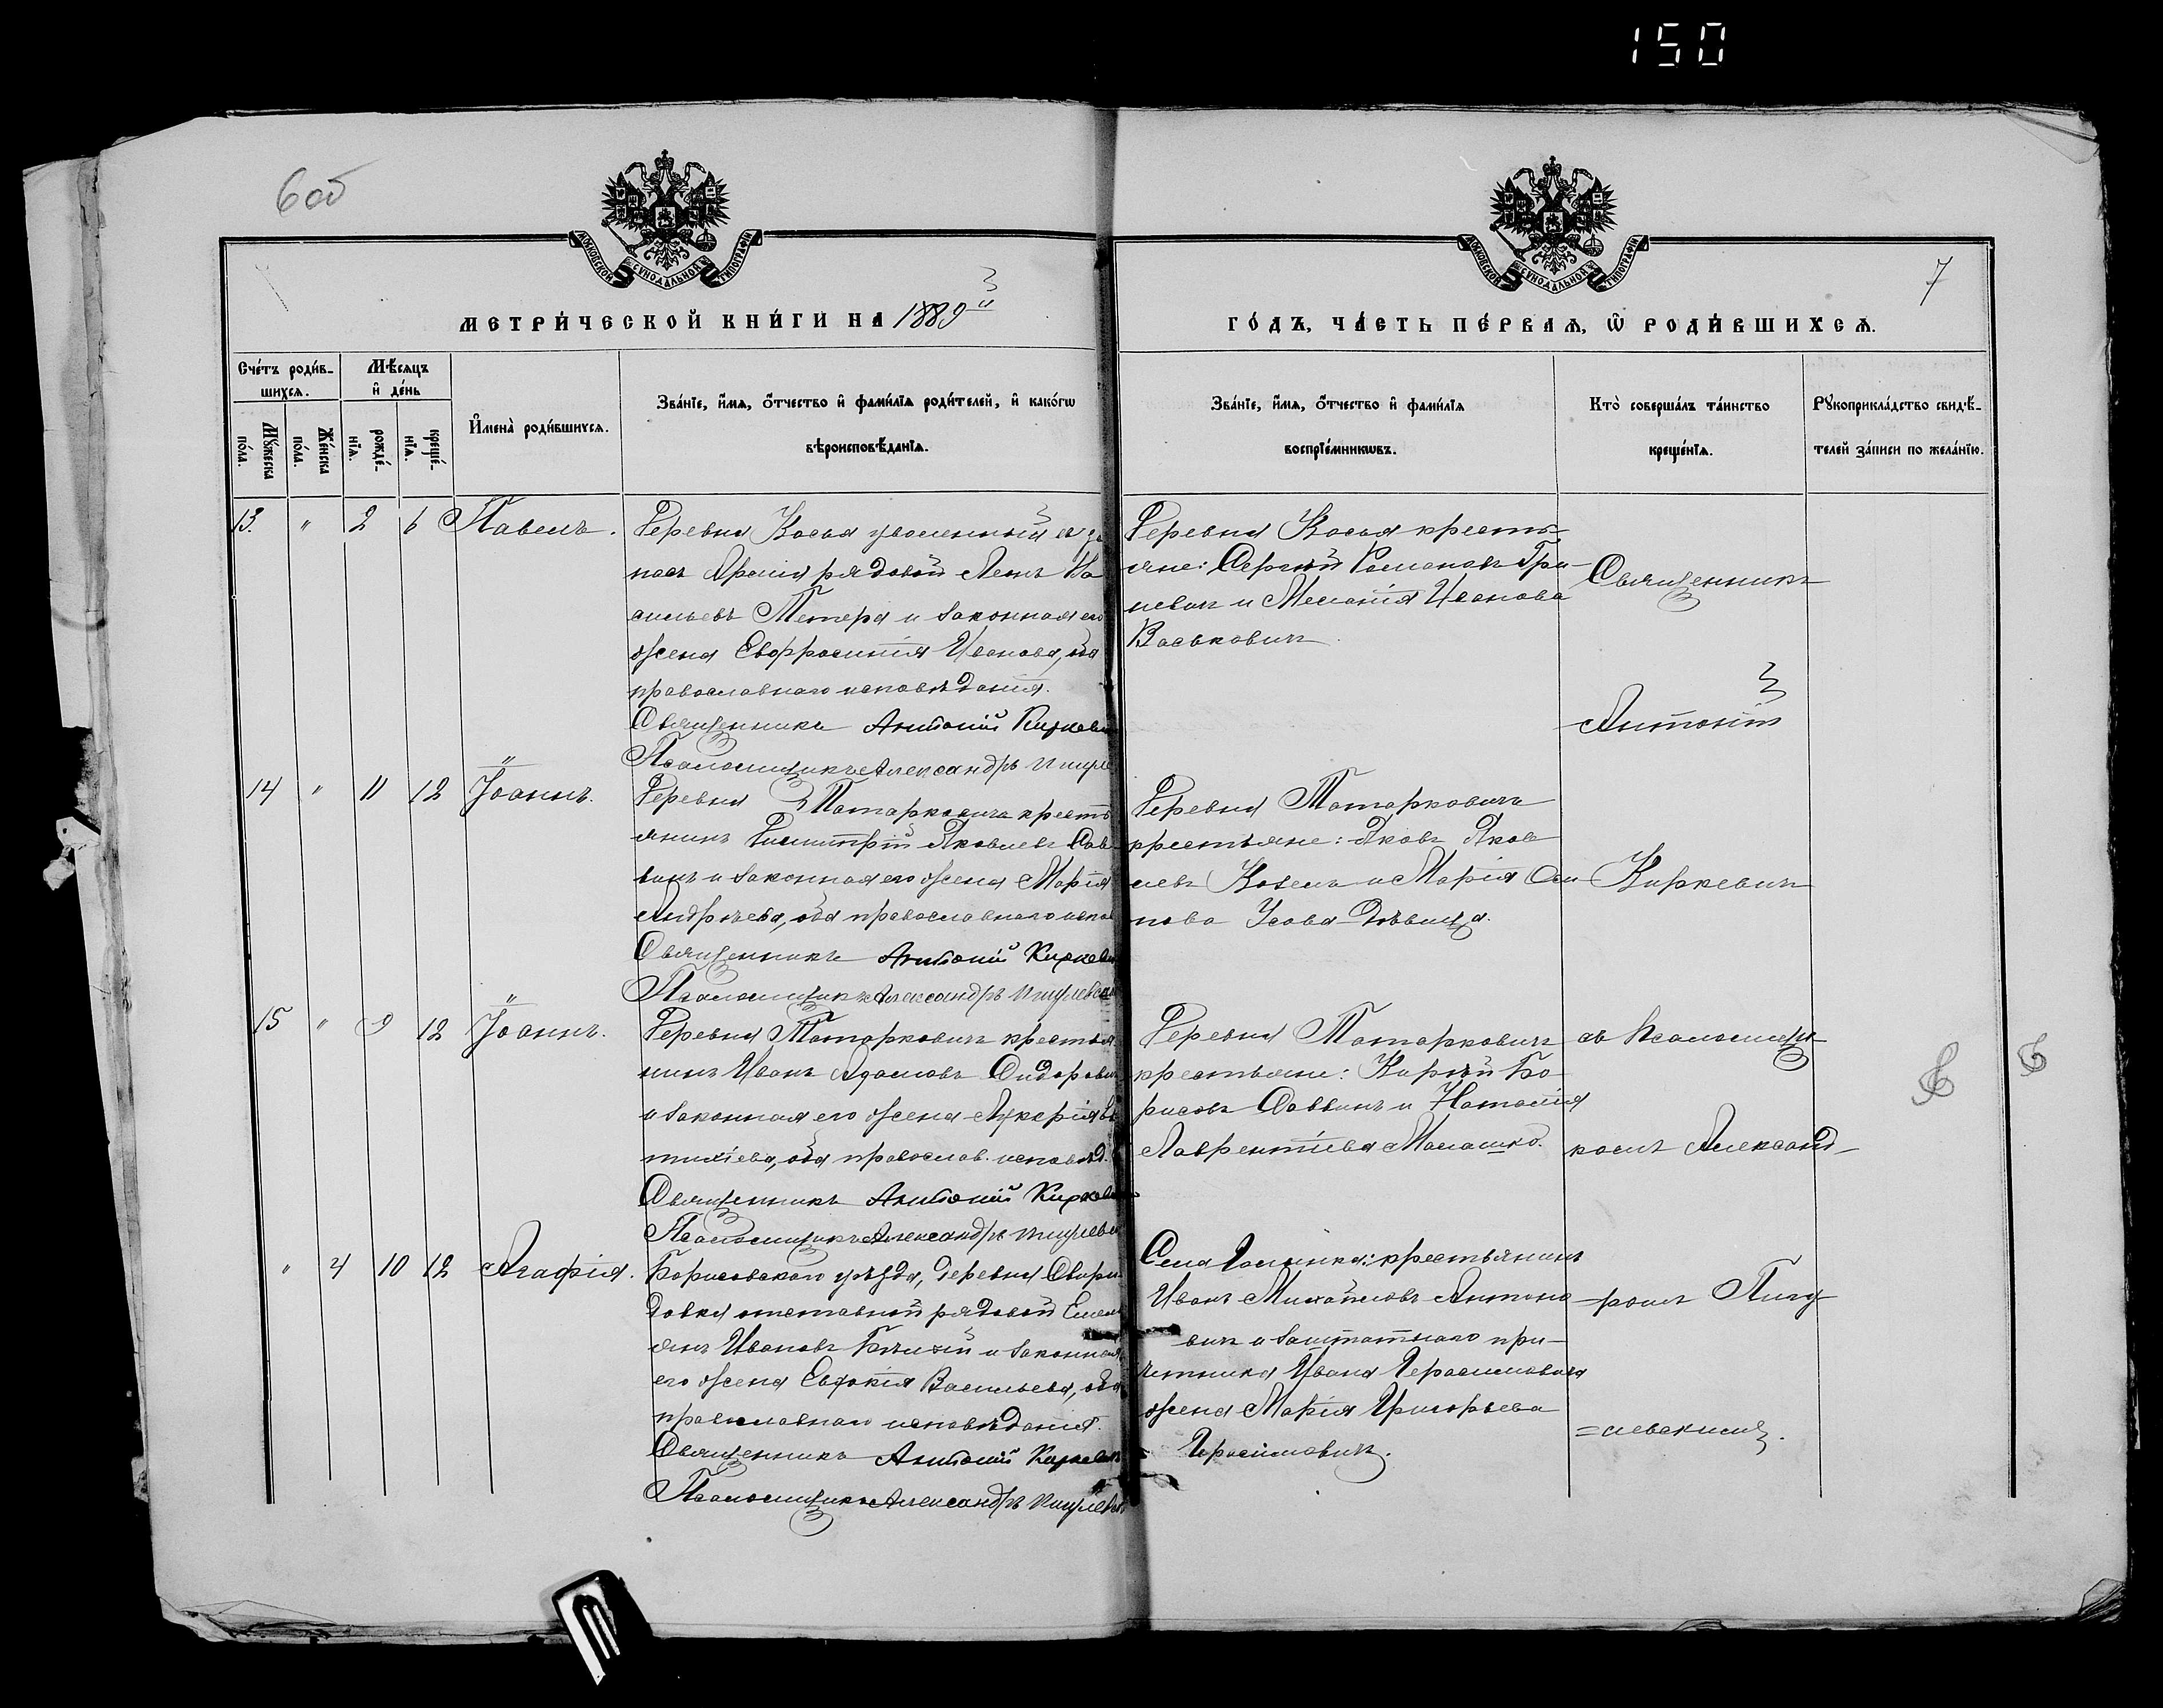 150
6 об
МОСКОВСКОЙ СУНОДАЛЬНОЙ ТИПОГРАФІИ
МОСКОВСКОЙ СУНОДАЛЬНОЙ ТИПОГРАФІИ
7
МЕТРИ́ЧЕСКОЙ КНИ́ГИ НА 1889й
ГО́ДЪ, ЧА́СТЬ ПЕ́РВАѦ, Ѿ РОДИ́ВШИХСѦ.
Сче́тъ роди́в-
шихсѧ.
Мѣ́сѧцъ
и҆ де́нь
Мꙋ́жеска
по́ла.
Же́нска
по́ла.
рожде́-
нїѧ.
креще́-
нїѧ.
И҆мена̀ роди́вшихсѧ.
Зва́нїе, и҆́мѧ, ѻ҆́тчество и҆ фами́лїѧ роди́телей, и҆ како́гѡ
вѣроисповѣ́данїѧ.
Зва́нїе, и҆́мѧ, ѻ҆́тчество и҆ фами́лїѧ
воспрїе́мникѡвъ.
Кто̀ соверша́лъ та́инство
креще́нїѧ.
Рꙋкоприкла́дство свидѣ́-
телей за́писи по жела́нїю.
13. " 2 6 Павелъ.
Деревни Косья уволенный въ за
пасъ Арміи рядовой Леонъ Ва
сильевъ Метера и законная его
жена Евфросинія Иванова, оба
православнаго исповѣданія.
Священникъ Антоній Киркеви
Псаломщикъ Александръ
Деревни Косья кресть-
яне: Сергѣй Романовъ Гри-
невичъ и Меланія Иванова
Васьковичъ
Священникъ
Антоній
14 " 11 12 Іоаннъ.
Деревни Татарковича кресть
янинъ Димитрій Яковлевъ Сав
винъ и законная его жена Марія
Андреева, оба православнаго испов
Священникъ Антоній Киркеви
Псаломщикъ Александръ
Деревни Татарковичъ
крестьяне: Яковъ Яков
левъ Козелъ и Марія Оси
пова Усова дѣвица.
Киркевичъ
15 " 9 12 Іоаннъ.
Деревни Татарковичъ крестья
нинъ Иванъ Адамовъ Сидорови
и законная его жена Лукерія Ев
тихіева, оба православ. исповѣд.
Священникъ Антоній Киркеви
Псаломщикъ Александръ
Деревни Татарковичъ
крестьяне: Кирѣй Бо
рисовъ Саввинъ и Наталія
Лаврентіева Малашко.
съ Псаломщи-
комъ Александ-
" 4 10 12 Агафія.
Борисовскаго уѣзда, деревни Свири
довки отставной рядовой Емель
янъ Ивановъ и законная
его жена Евдокія Васильева, оба
православнаго исповѣданія.
Священникъ Антоній Киркевичъ
Псаломщикъ Александръ
Села крестьянинъ
Иванъ Михайловъ Антоно
вичъ и заштатнаго при-
четника Ивана Герасимовича
жена Марія Григорьева
Герасимовичъ.
-ромъ